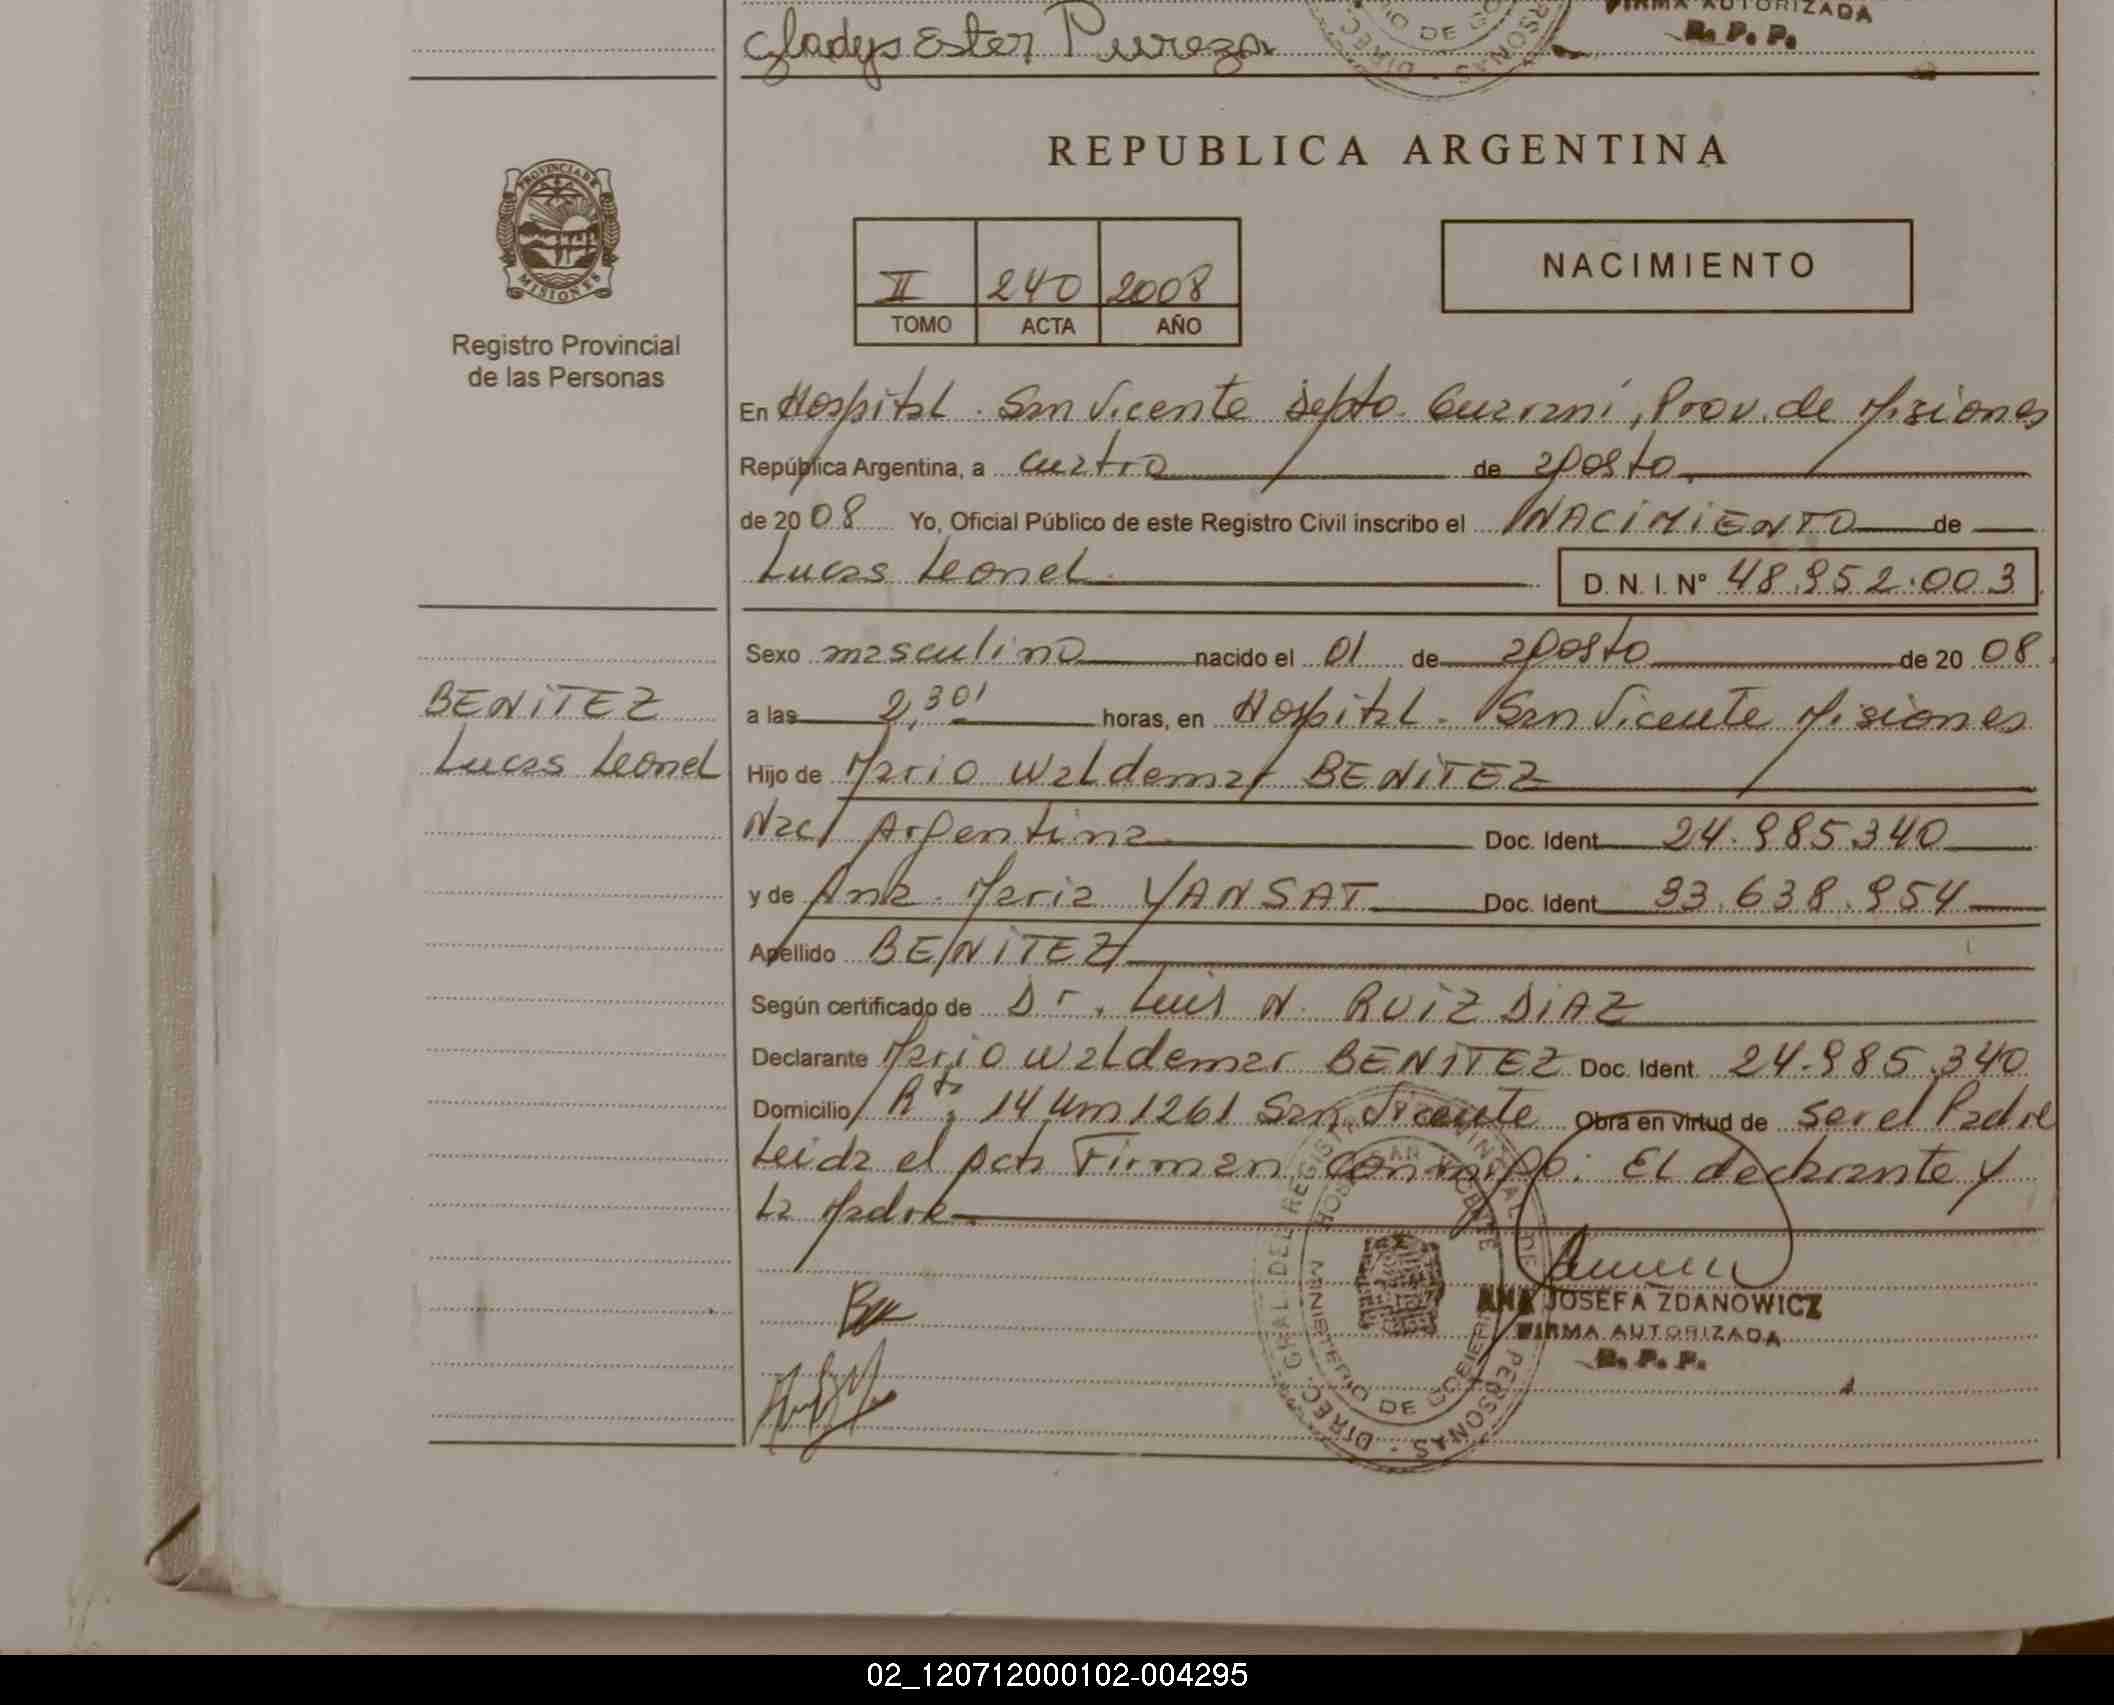 FIRMA AUTORIZADA
R. P. P.
Gladys Ester Pureza
REPUBLICA ARGENTINA
PROVINCIA DE
MISIONES
Registro Provincial
de las Personas
II 240 2008
TOMO ACTA AÑO
NACIMIENTO
En Hospital. San Vicente Depto. Guaraní, Prov. de Misiones
República Argentina, a cuatro de agosto
de 20 08 Yo, Oficial Público de este Registro Civil inscribo el NACIMIENTO de
Lucas Leonel D. N. I. N° 48.952.003
Sexo masculino nacido el 01 de agosto de 20 08
BENITEZ
Lucas Leonel
a las 2,30' horas, en Hospital. San Vicente Misiones
Hijo de Mario Waldemar BENITEZ
Nac/ Argentina Doc. Ident 24.985.340
y de Ana Maria YANSAT Doc. Ident 33.638.954
Apellido BENITEZ
Según certificado de Dr. Luis N. RUIZ DIAZ
Declarante Mario Waldemar BENITEZ Doc. Ident. 24.985.340
Domicilio Rta. 14 Km 1261 San Vicente Obra en virtud de ser el Padre
Leida el acta Firman conmigo: El declarante y
La Madre
DIREC. GRAL. DEL REGISTRO PROVINCIAL DE PERSONAS
MINISTERIO DE GOBIERNO
ANA JOSEFA ZDANOWICZ
FIRMA AUTORIZADA
R. P. P.
02_120712000102-004295